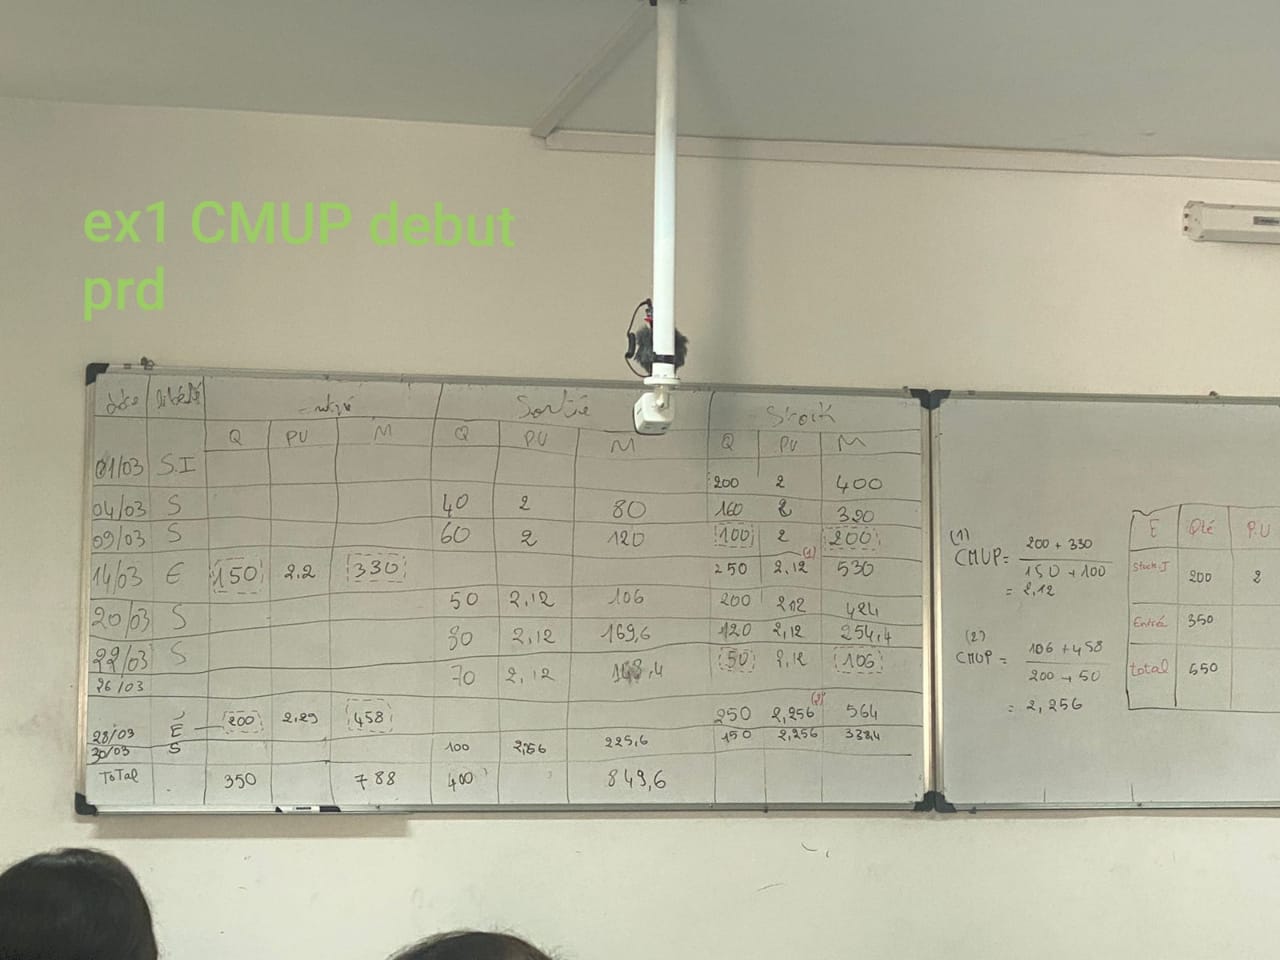 ex1 CMUP debut
prd
Sortie Stock
Q PU M Q P.U M Q PU M
01/03 S.I 200 2 400
04/03 S 40 2 80 160 2 320
09/03 S 60 2 120 100 2 200
14/03 E 150 2,2 330 250 2,12 (1) 530
20/03 S 50 2,12 106 200 2,12 424
22/03 S 80 2,12 169,6 120 2,12 254,4
26/03 70 2,12 50 2,12 106
28/03 É 200 2,29 458 250 2,256 (2) 564
30/03 S 100 2,256 225,6 150 2,256 338,4
ToTal 350 788 400 849,6
(1)
CMUP = 200 + 330
150 + 100
= 2,12
(2)
CMUP = 106 + 458
200 + 50
= 2,256
E Qté P.U
Stock.I 200 2
Entrée 350
total 550